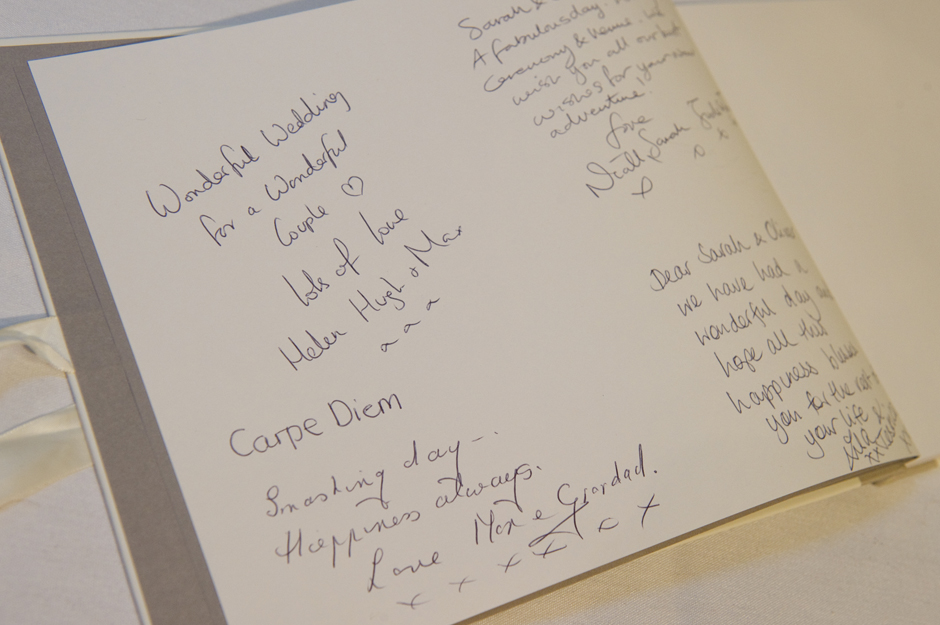 Wonderful Wedding
for a Wonderful
Couple ♡
Lots of love
Helen Hugh & Max
Carpe Diem
Smashing day -
Happiness always.
Love Mum & Grandad.
x x x x x x
Sarah &
A fabulous day.
Ceremony & Venue. We
wish you all our best
wishes for your new
adventure!
Love
Niall, Sarah
x o x
Dear Sarah &
we have had a
wonderful day and
hope all this
happiness blesses
you for the rest of
your life